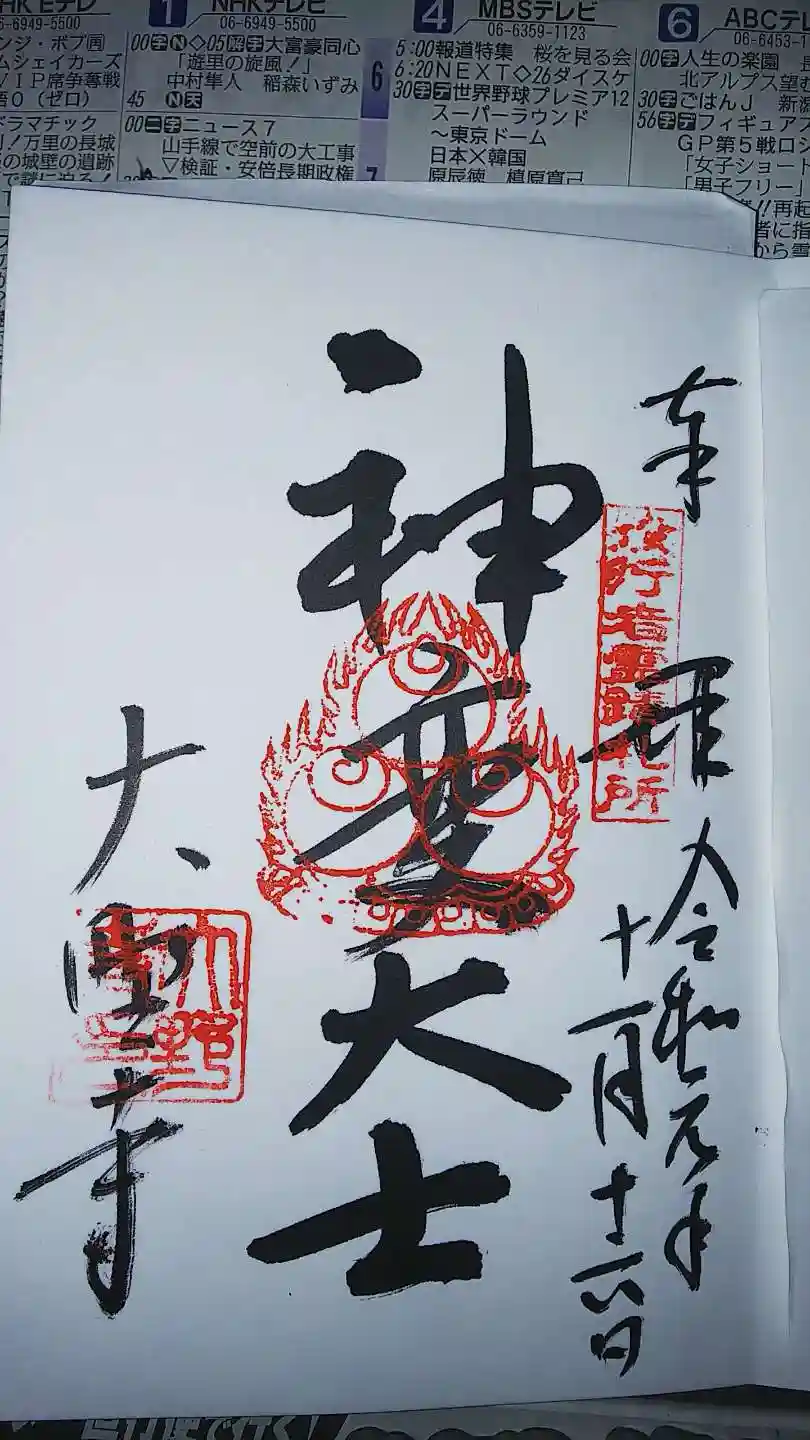 HK Eテレ
6-6949-5500
VIP席争奪戦
ドラマチック
1 NHKテレビ
06-6949-5500
00字N◇05解字大富豪同心
「遊里の旋風!」
中村隼人 稲森いずみ
45 N天
00二字ニュース7
山手線で空前の大工事
▽検証・安倍長期政権
6
7
4 MBSテレビ
06-6359-1123
5:00報道特集 桜を見る会
6:20NEXT◇26ダイスケ
30字デ世界野球プレミア12
スーパーラウンド
~東京ドーム
日本×韓国
原辰徳 槙原寛己
6 ABCテレ
06-6453-1
00字人生の楽園
北アルプス望む
30字ごはんJ 新潟
56字デフィギュア
GP第5戦ロシ
「女子ショート
「男子フリー」
奉拝
役行者霊蹟札所
令和元年
十一月十六日
神変大士
大野寺